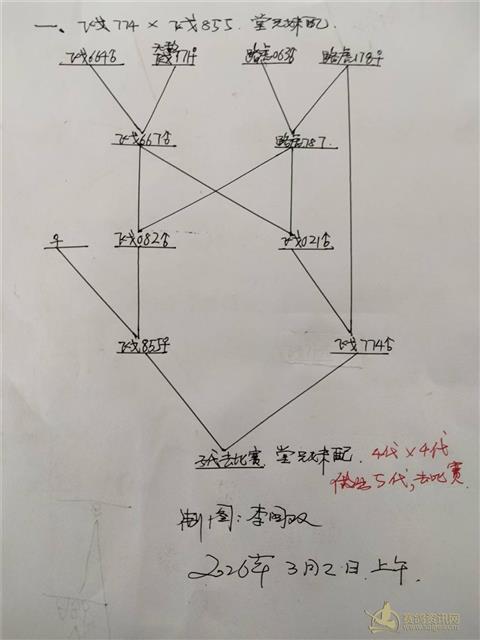 一、飞戈774 × 飞戈855. 堂兄妹配.
飞戈664♂ 971♀ 路虎063♂ 路虎178♀
飞戈667♂ 路虎787.
♀ 飞戈082♂ 飞戈021♂
飞戈855♀ 飞戈774♂
3代去比赛 堂兄妹配. 4代×4代
5代,去比赛
制图:李国双
2026年3月2日上午.
赛鸽资讯网